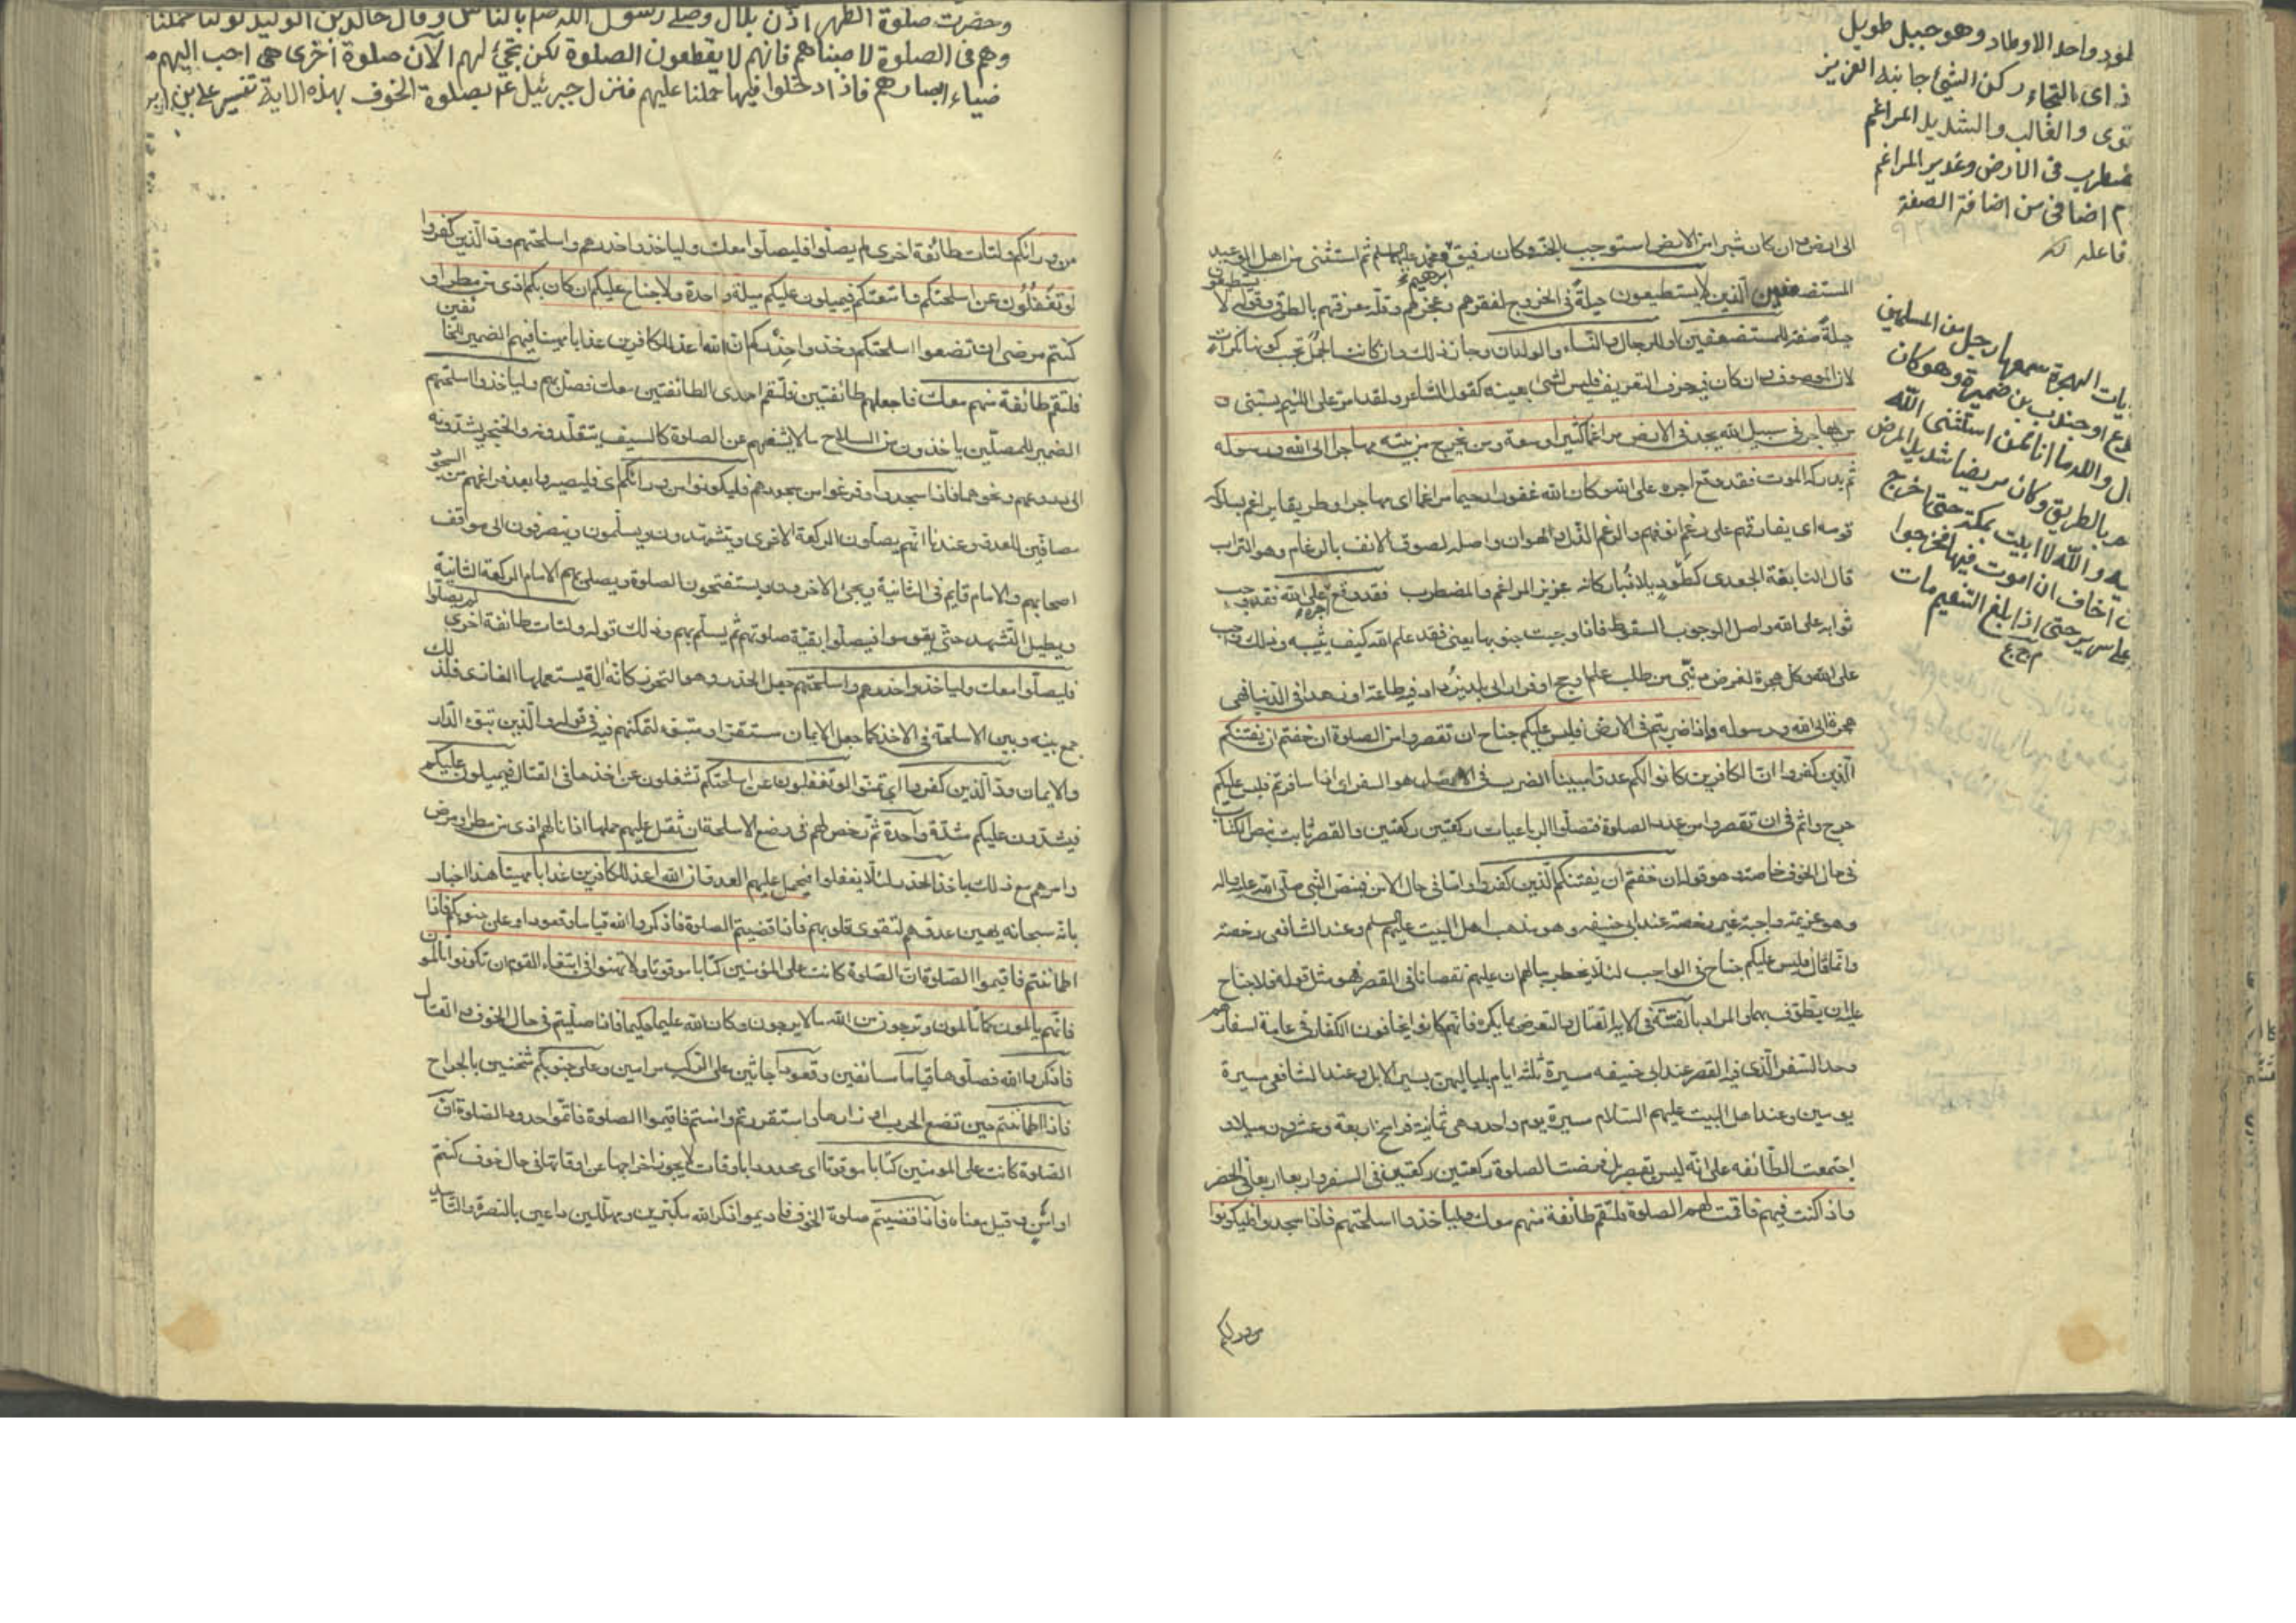 الى ارض وان كان شبرا من الارض استوجب الجنة وكان رفيق ابرهيم ومحمد عليهما السلم ثم استثنى من اهل الوعيد
المستضعفين الذين لا يستطيعون حيلة في الخروج لفقرهم وعجزهم وقلة معرفتهم بالطرق وقوله لا يستطيعون
حيلة صفة للمستضعفين او للرجال والنساء والولدان وجاز ذلك وان كانت الجمل تجب كونها نكرات
لان الموصوف وان كان فيه حرف التعريف فليس لشئ بعينه كقول الشاعر ولقد امر على اللئيم يسبنى
من يهاجر في سبيل الله يجد في الارض مراغما كثيرا وسعة ومن يخرج من بيته مهاجرا الى الله ورسوله
ثم يدركه الموت فقد وقع اجره على الله وكان الله غفورا رحيما مراغما اى مهاجرا وطريقا يراغم بسلوكه
قومه اى يفارقهم على رغم انوفهم والرغم الذل والهوان واصله لصوق الانف بالرغام وهو التراب
قال النابغة الجعدى كطود يلاذ باركانه عزيز المراغم والمضطرب فقد وقع اجره على الله فقد وجب
ثوابه على الله واصل الوجوب السقوط فاذا وجبت جنوبها يعنى فقد علم الله كيف يثيبه وذلك واجب
على الله وكل هجرة لغرض دينى من طلب علم او حج او فرار الى بلد يزداد فيه طاعة او زهدا في الدنيا فهى
هجرة الى الله ورسوله واذا ضربتم في الارض فليس عليكم جناح ان تقصروا من الصلوة ان خفتم ان يفتنكم
الذين كفروا ان الكافرين كانوا لكم عدوا مبينا الضرب في الارض هو السفر اى اذا سافرتم فليس عليكم
حرج واثم في ان تقصروا من عدد الصلوة فتصلوا الرباعيات ركعتين ركعتين والقصر ثابت بنص الكتاب
في حال الخوف خاصة وهو قوله ان خفتم ان يفتنكم الذين كفروا واما في حال الامن فبنص النبى صلى الله عليه واله
وهو عزيمة واجبة غير رخصة عند ابى حنيفه وهو مذهب اهل البيت عليهم السلم وعند الشافعى رخصة
وانما قال فليس عليكم جناح في الواجب لئلا يخطر ببالهم ان عليهم نقصانا في القصر فهو مثل قوله فلا جناح
عليه ان يطوف بهما والمراد بالفتنة في الاية القتال والتعرض بما يكره فانهم كانوا يخافون الكفار في عامة اسفارهم
وحد السفر الذى فيه القصر عند ابى حنيفه مسيرة ثلثه ايام بلياليهن بسير الابل وعند الشافعى مسيرة
يومين وعند اهل البيت عليهم السلام مسيرة يوم واحد وهى ثمانية فراسخ اربعة وعشرون ميلا و
اجتمعت الطائفه على انه ليس بقصر بل فرضت الصلوة ركعتين ركعتين في السفر واربعا اربعا في الحضر
واذا كنت فيهم فاقمت لهم الصلوة فلتقم طائفة منهم معك وليأخذوا اسلحتهم فاذا سجدوا فليكونوا
من ورائكم
واحد الاوطاد وهو جبل طويل
اى بالتجاء ركن الشئ جانبه العزيز
والغالب والشديد المراغم
في الارض وغدير المراغم
اضافى من اضافة الصفة
فاعله
الهجرة سمعها رجل من المسلمين
او جندب بن ضميرة وهو كان
والله ما انا ممن استثنى الله
بالطريق وكان مريضا شديد المرض
والله لا ابيت بمكة حتى اخرج
اخاف ان اموت فيها فخرجوا
على سرير حتى اذا بلغ التنعيم مات
م ج ع
وحضرت صلوة الظهر اذن بلال وصلى رسول الله صلم بالناس وقال خالد بن الوليد لو كنا حملنا
وهم في الصلوة لاصبناهم فانهم لا يقطعون الصلوة لكن تجئ لهم الآن صلوة اخرى هى احب اليهم من
ضياء ابصارهم فاذا دخلوا فيها حملنا عليهم فنزل جبرئيل عم بصلوة الخوف بهذه الاية تفسير على بن ابر
من ورائكم ولتأت طائفة اخرى لم يصلوا فليصلوا معك وليأخذوا حذرهم واسلحتهم ود الذين كفروا
لو تغفلون عن اسلحتكم وامتعتكم فيميلون عليكم ميلة واحدة ولا جناح عليكم ان كان بكم اذى من مطر او
كنتم مرضى ان تضعوا اسلحتكم وخذوا حذركم ان الله اعد للكافرين عذابا مهينا فيهم الضمير للخائفين
فلتقم طائفة منهم معك فاجعلهم طائفتين فلتقم احدى الطائفتين معك فصل بهم وليأخذوا اسلحتهم
الضمير للمصلين يأخذون من السلاح ما لا يشغلهم عن الصلوة كالسيف يتقلدونه والخنجر يشدونه
الى دروعهم ونحوهما فاذا سجدوا وفرغوا من سجودهم فليكونوا من ورائكم اى فليصيروا بعد فراغهم من السجود
مصافين للعدو وعندنا انهم يصلون الركعة الاخرى ويتشهدون ويسلمون وينصرفون الى مواقف
اصحابهم والامام قايم في الثانية ويجئ الاخرون ويستفتحون الصلوة ويصلى بهم الامام الركعة الثانية
ويطيل التشهد حتى يقوموا فيصلوا بقية صلوتهم ثم يسلم بهم وذلك قوله ولتأت طائفة اخرى لم يصلوا
فليصلوا معك وليأخذوا حذرهم واسلحتهم جعل الحذر وهو التحرز كانه آلة يستعملها الغازى فلذلك
جمع بينه وبين الاسلحة في الاخذ كما جعل الايمان مستقرا ومتبوء لتمكنهم فيه في قوله والذين تبوؤ الدار
والايمان ود الذين كفروا اى تمنوا لو تغفلون عن اسلحتكم تشغلون عن اخذها في القتال فيميلون عليكم
فيشدون عليكم شدة واحدة ثم رخص لهم في وضع الاسلحة ان ثقل عليهم حملها اذا نالهم اذى من مطر او مرض
وامرهم مع ذلك باخذ الحذر لئلا يغفلوا فيحمل عليهم العدو فان الله اعد للكافرين عذابا مهينا هذا اخبار
بانه سبحانه يهين عدوهم لتقوى قلوبهم فاذا قضيتم الصلوة فاذكروا الله قياما وقعودا وعلى جنوبكم فاذا
اطمأننتم فاقيموا الصلوة ان الصلوة كانت على المؤمنين كتابا موقوتا ولا تهنوا في ابتغاء القوم ان تكونوا تألمون
فانهم يألمون كما تألمون وترجون من الله ما لا يرجون وكان الله عليما حكيما فاذا صليتم في حال الخوف والقتال
فاذكروا الله فصلوها قياما مسائفين وقعودا جاثين على الركب مرامين وعلى جنوبكم مثخنين بالجراح
فاذا اطمأننتم حين تضع الحرب اوزارها واستقررتم وامنتم فاقيموا الصلوة فاتموا حدود الصلوة ان
الصلوة كانت على المومنين كتابا موقوتا اى محدودا باوقات لا يجوز اخراجها عن اوقاتها في حال خوف كنتم
او امن وقيل معناه فاذا قضيتم صلوة الخوف فاديموا ذكر الله مكبرين ومهللين داعين بالنصرة والتأييد